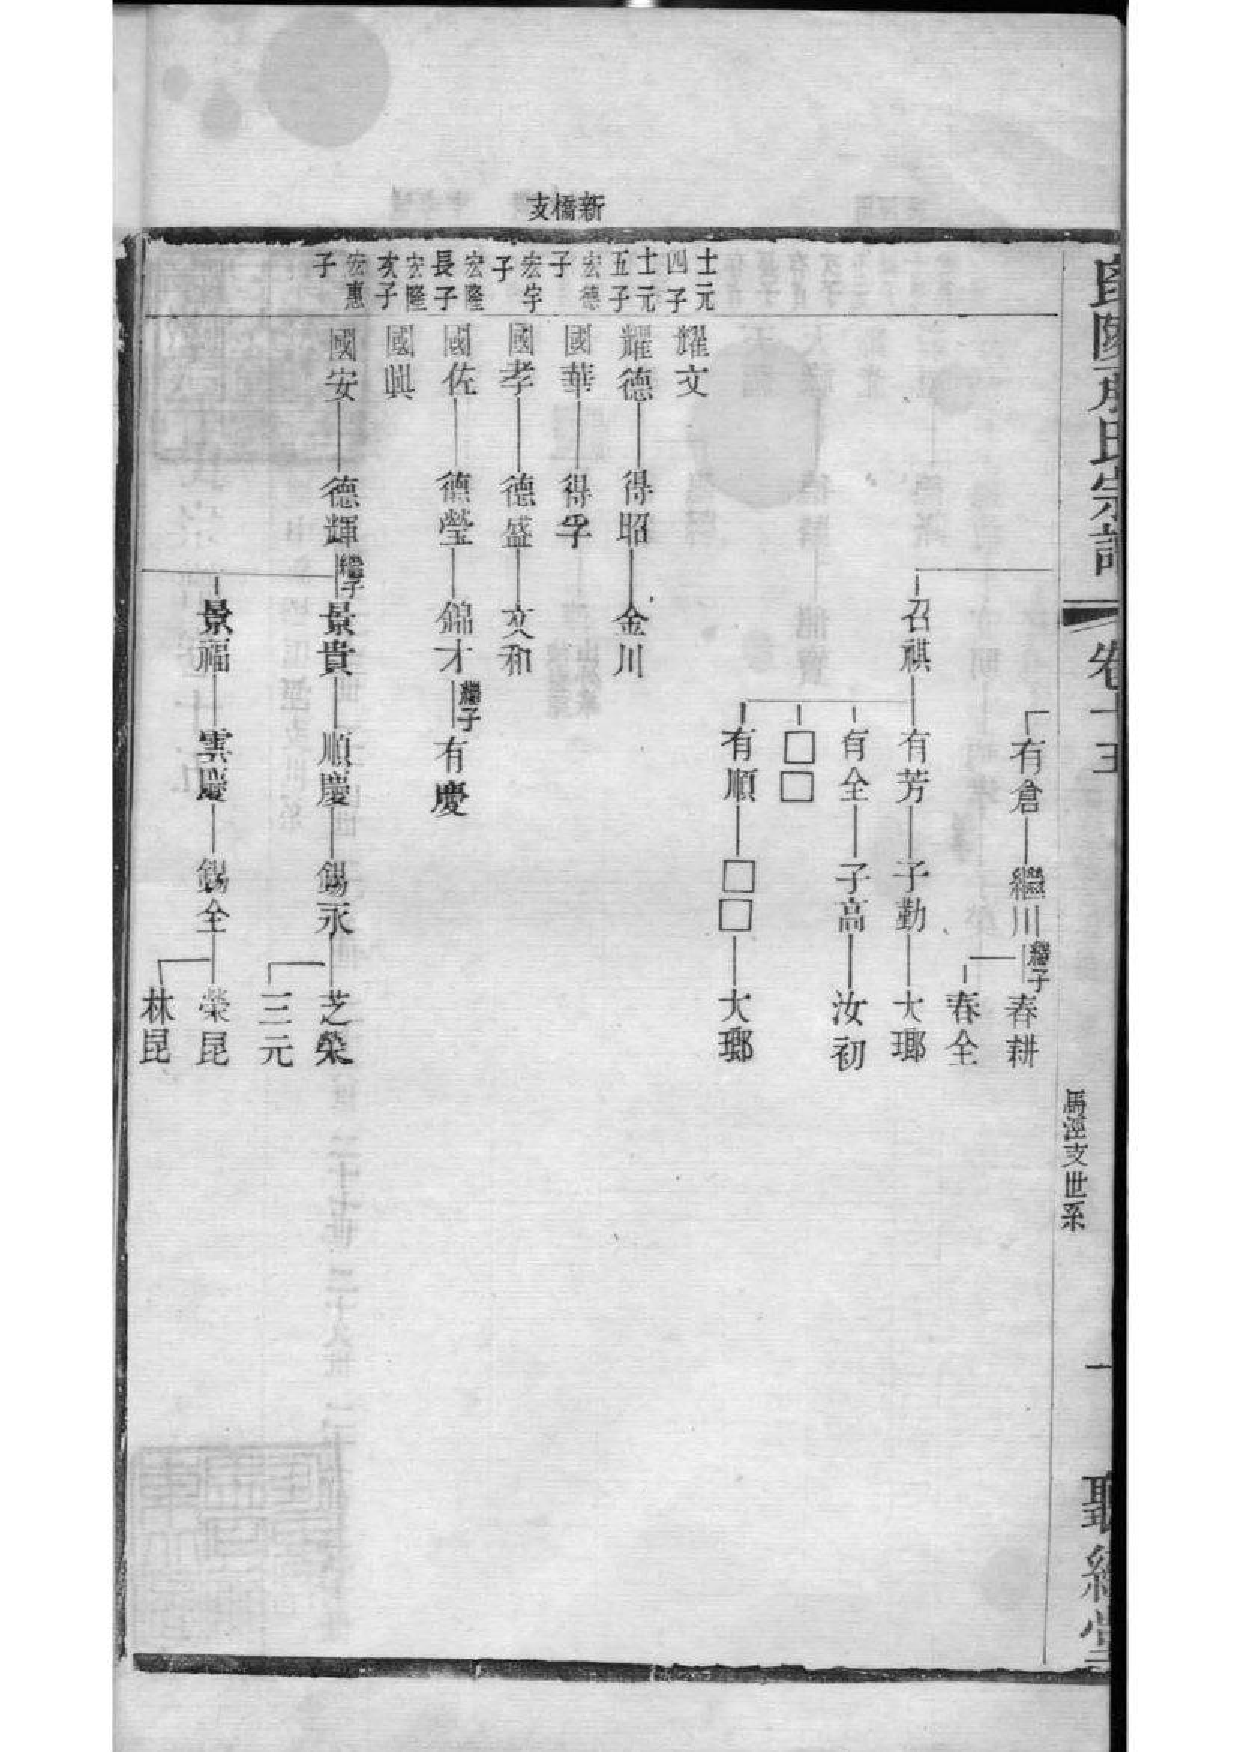 新橋支
氏宗譜
卷十五
馬涇支世系
一
有倉 繼川 繼子 春耕
春全
召祺 有芳 子勤 大瑯
有全 子高 汝初
□□
有順 □□ 大瑯
士元四子 耀文
士元五子 耀德 得昭 金川
宏德子 國華 得孚
宏宇子 國孝 德盛 文和
宏隆長子 國佐 德瑩 錦才 繼子 有慶
宏隆次子 國興
宏惠子 國安 德輝 繼子 景貴 順慶 錫永 芝榮
三元
景福 雲慶 錫全 榮昆
林昆